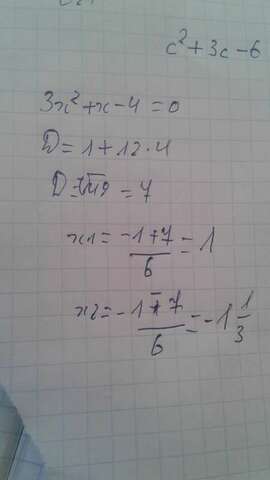 c² + 3c - 6
3x² + x - 4 = 0
D = 1 + 12 · 4
D = √49 = 7
x1 = (-1+7)/6 = 1
x2 = (-1-7)/6 = -1 1/3